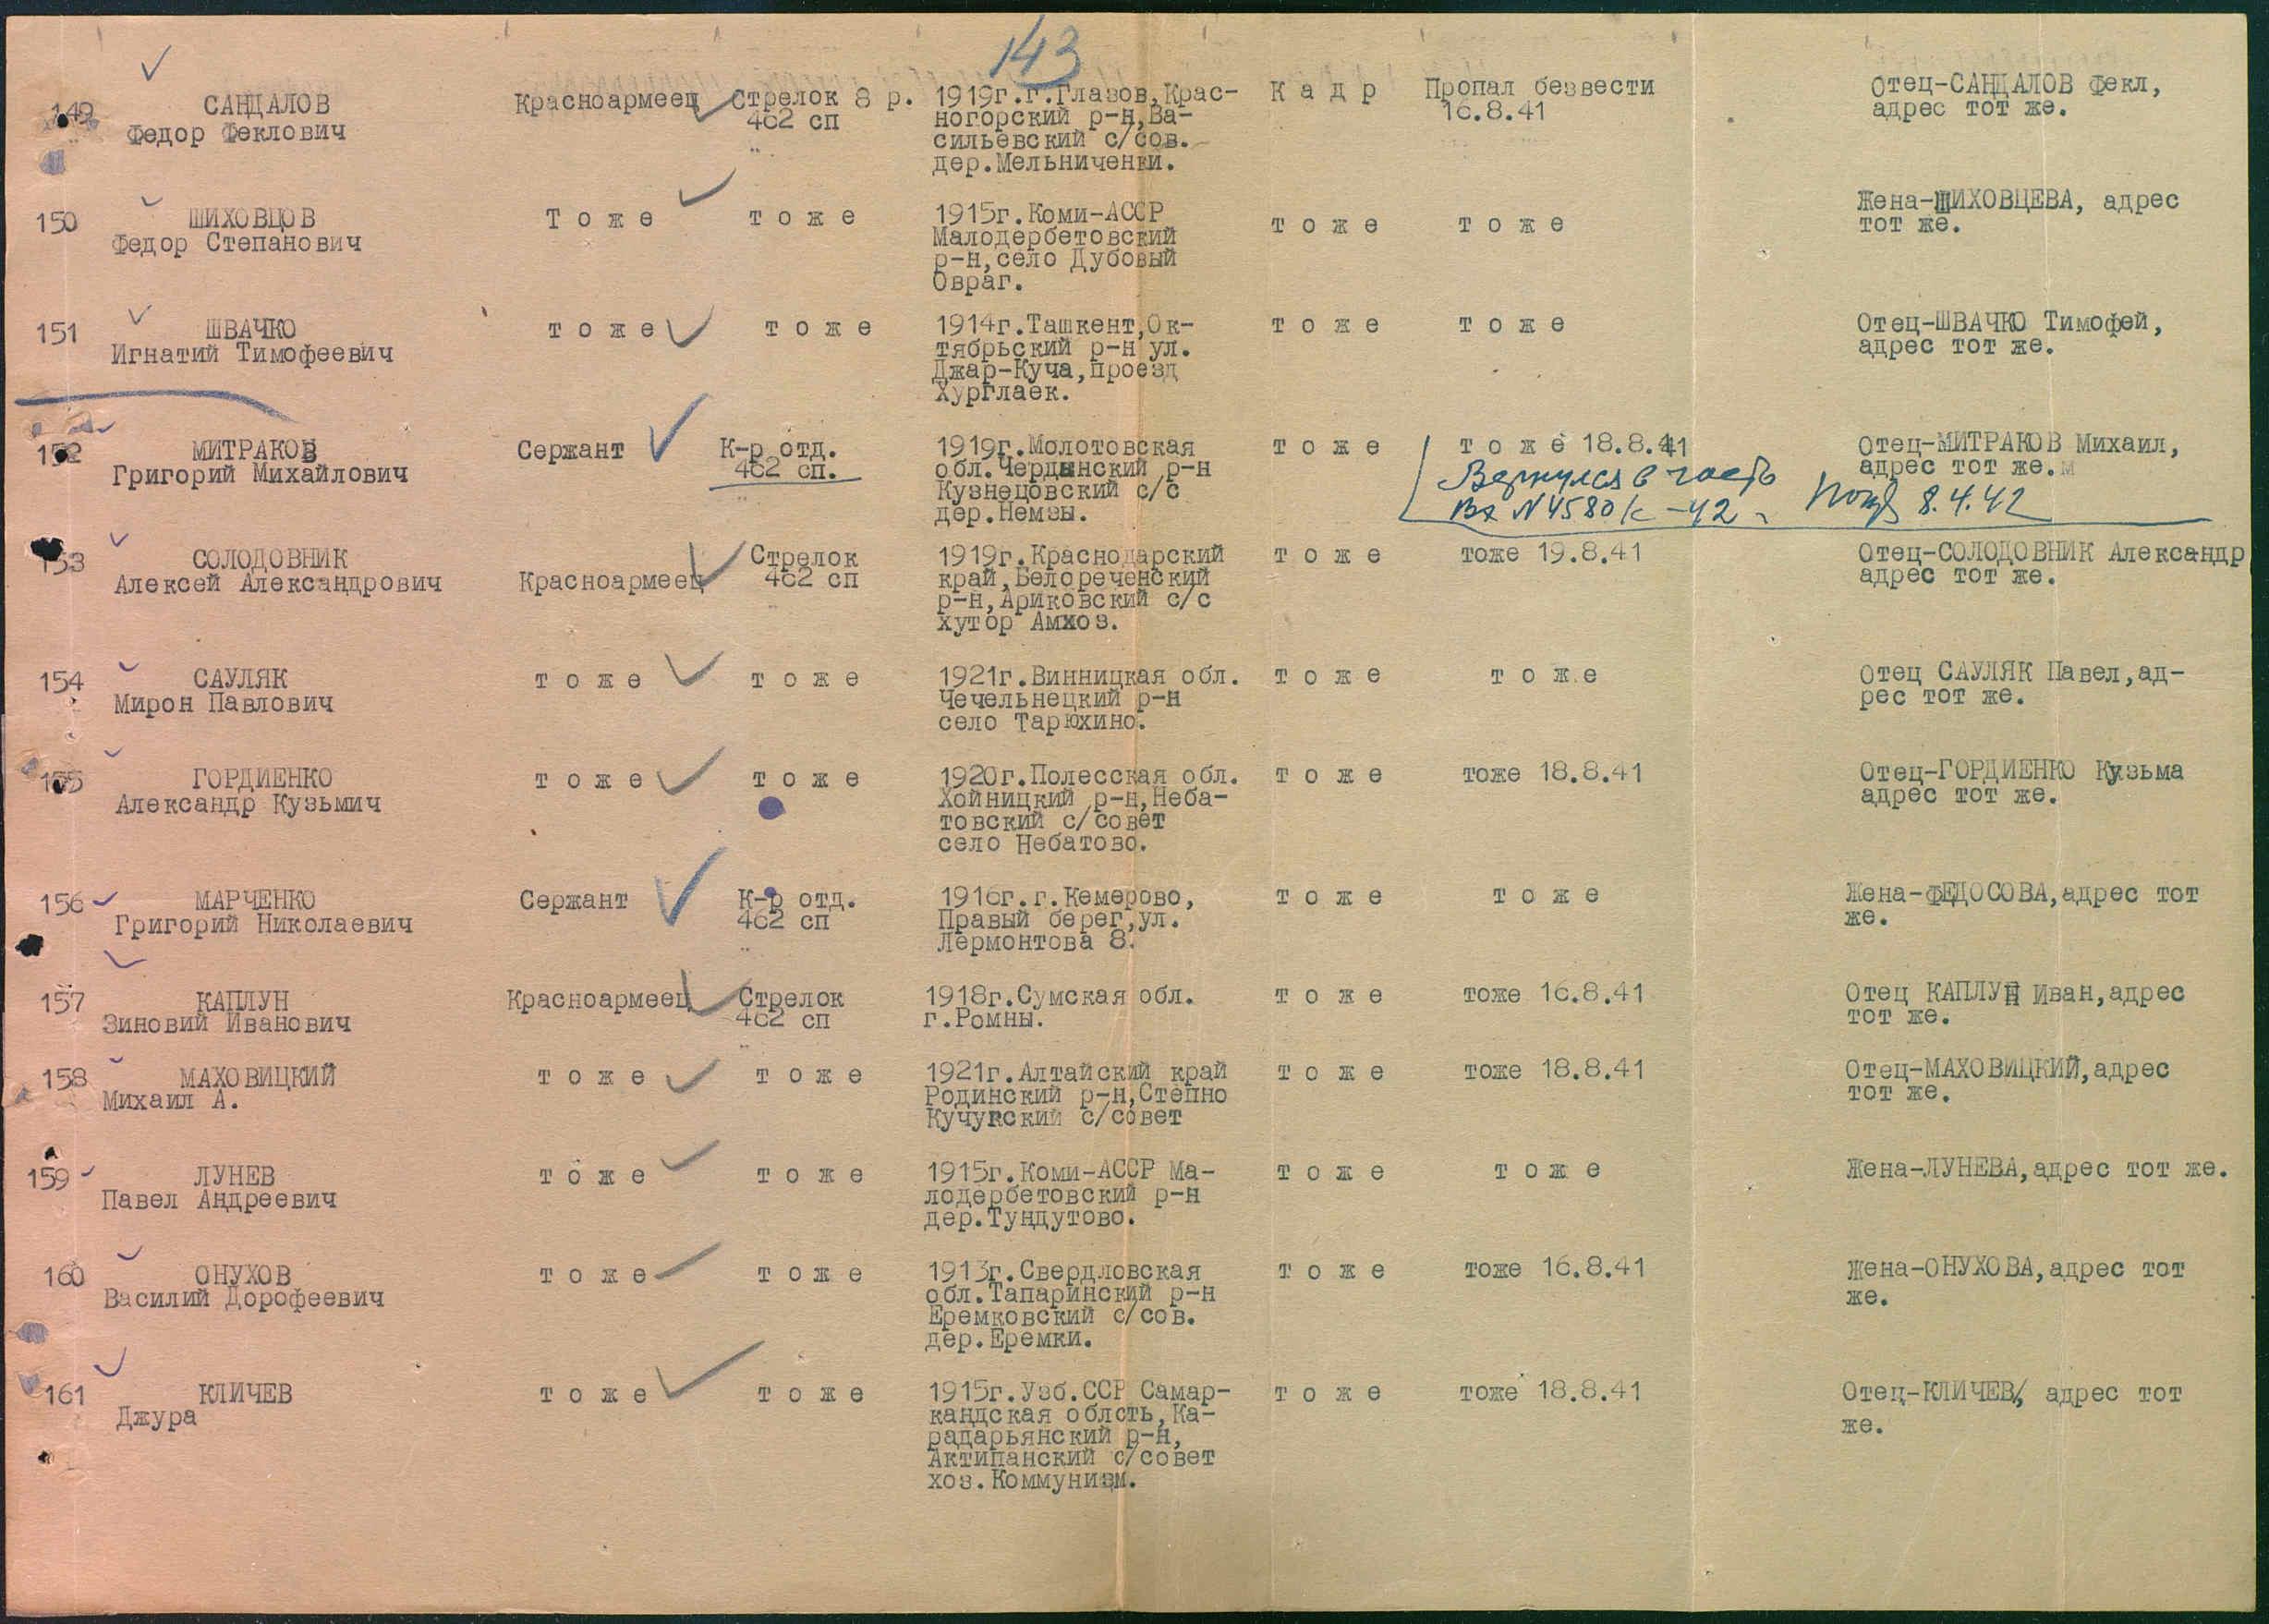 143
149 САНДАЛОВ Красноармеец Стрелок 8 р. 1919г.г.Глазов,Крас- К а д р Пропал безвести Отец-САНДАЛОВ Фекл,
Федор Феклович 462 сп ногорский р-н,Ва- 16.8.41 адрес тот же.
сильевский с/сов.
дер.Мельниченки.
150 ШИХОВЦОВ Т о ж е т о ж е 1915г.Коми-АССР т о ж е т о ж е Жена-ШИХОВЦЕВА, адрес
Федор Степанович Малодербетовский тот же.
р-н,село Дубовый
Овраг.
151 ШВАЧКО т о ж е т о ж е 1914г.Ташкент,Ок- т о ж е т о ж е Отец-ШВАЧКО Тимофей,
Игнатий Тимофеевич тябрьский р-н ул. адрес тот же.
Джар-Куча,проезд
Хурглаек.
152 МИТРАКОВ Сержант К-р отд. 1919г.Молотовская т о ж е т о ж е 18.8.41 Отец-МИТРАКОВ Михаил,
Григорий Михайлович 462 сп. обл.Чердынский р-н адрес тот же.
Кузнецовский с/с Вернулся в часть
дер.Немзы. Вх N 4580/с-42 8.4.42
153 СОЛОДОВНИК Красноармеец Стрелок 1919г.Краснодарский т о ж е тоже 19.8.41 Отец-СОЛОДОВНИК Александр
Алексей Александрович 462 сп край,Белореченский адрес тот же.
р-н,Ариковский с/с
хутор Амхоз.
154 САУЛЯК т о ж е т о ж е 1921г.Винницкая обл. т о ж е т о ж е Отец САУЛЯК Павел,ад-
Мирон Павлович Чечельнецкий р-н рес тот же.
село Тарюхино.
155 ГОРДИЕНКО т о ж е т о ж е 1920г.Полесская обл. т о ж е тоже 18.8.41 Отец-ГОРДИЕНКО Кузьма
Александр Кузьмич Хойницкий р-н,Неба- адрес тот же.
товский с/совет
село Небатово.
156 МАРЧЕНКО Сержант К-р отд. 1916г.г.Кемерово, т о ж е т о ж е Жена-ФЕДОСОВА,адрес тот
Григорий Николаевич 462 сп Правый берег,ул. же.
Лермонтова 8.
157 КАПЛУН Красноармеец Стрелок 1918г.Сумская обл. т о ж е тоже 16.8.41 Отец КАПЛУН Иван,адрес
Зиновий Иванович 462 сп г.Ромны. тот же.
158 МАХОВИЦКИЙ т о ж е т о ж е 1921г.Алтайский край т о ж е тоже 18.8.41 Отец-МАХОВИЦКИЙ,адрес
Михаил А. Родинский р-н,Степно тот же.
Кучукский с/совет
159 ЛУНЕВ т о ж е т о ж е 1915г.Коми-АССР Ма- т о ж е т о ж е Жена-ЛУНЕВА,адрес тот же.
Павел Андреевич лодербетовский р-н
дер.Тундутово.
160 ОНУХОВ т о ж е т о ж е 1913г.Свердловская т о ж е тоже 16.8.41 Жена-ОНУХОВА,адрес тот
Василий Дорофеевич обл.Тапаринский р-н же.
Еремковский с/сов.
дер.Еремки.
161 КЛИЧЕВ т о ж е т о ж е 1915г.Узб.ССР Самар- т о ж е тоже 18.8.41 Отец-КЛИЧЕВ, адрес тот
Джура кандская облсть,Ка- же.
радарьянский р-н,
Актипанский с/совет
хоз.Коммунизм.